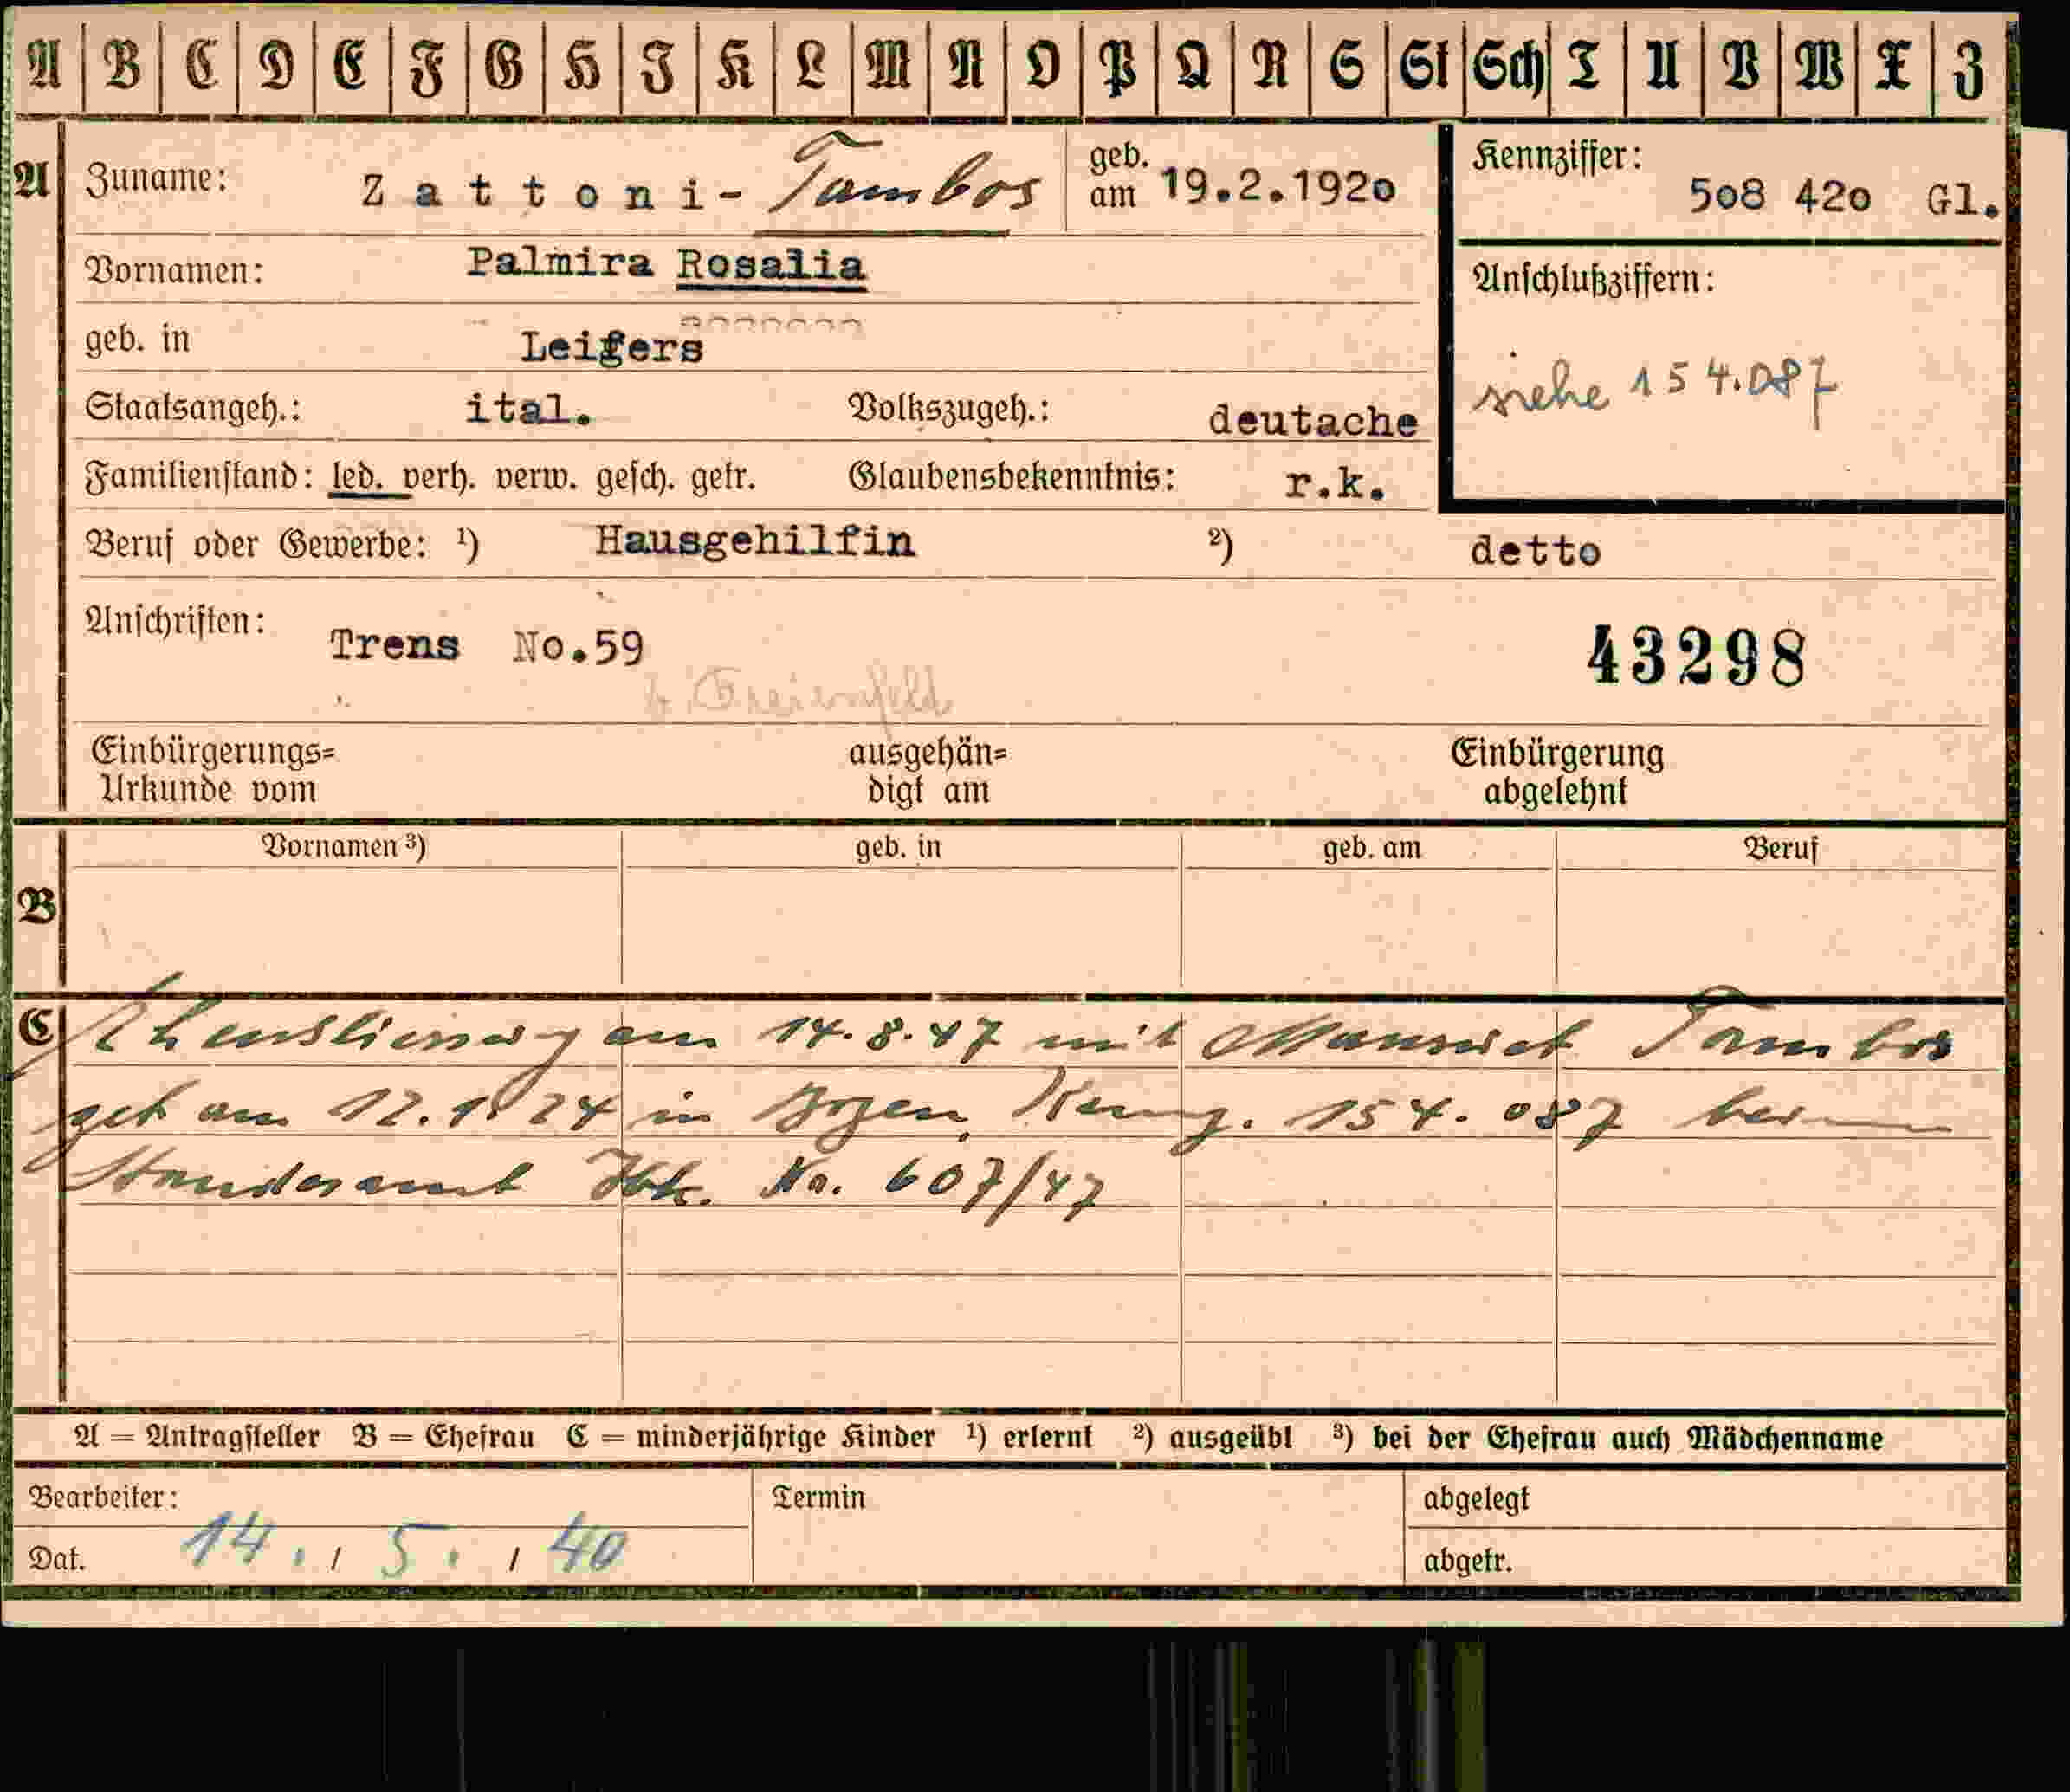 A B C D E F G H I K L M N O P Q R S St Sch T U V W X Z
A Zuname: Zattoni-Tambos geb. am 19.2.1920 Kennziffer: 508 420 Gl.
Vornamen: Palmira Rosalia
Anschlußziffern:
geb. in Leifers
siehe 154.087
Staatsangeh.: ital. Volkszugeh.: deutache
Familienstand: led. verh. verw. gesch. getr. Glaubensbekenntnis: r.k.
Beruf oder Gewerbe: 1) Hausgehilfin 2) detto
Anschriften: Trens No.59 43298
Freienfeld
Einbürgerungs= ausgehän= Einbürgerung
Urkunde vom digt am abgelehnt
Vornamen 3) geb. in geb. am Beruf
B
C Eheschliessung am 14.8.47 mit Tambos
geb am 12.1.24 in Bozen, Kennz. 154.087 beim
Standesamt Ibk. No. 607/47
A = Antragsteller B = Ehefrau C = minderjährige Kinder 1) erlernt 2) ausgeübt 3) bei der Ehefrau auch Mädchenname
Bearbeiter: Termin abgelegt
Dat. 14. / 5. / 40 abgetr.